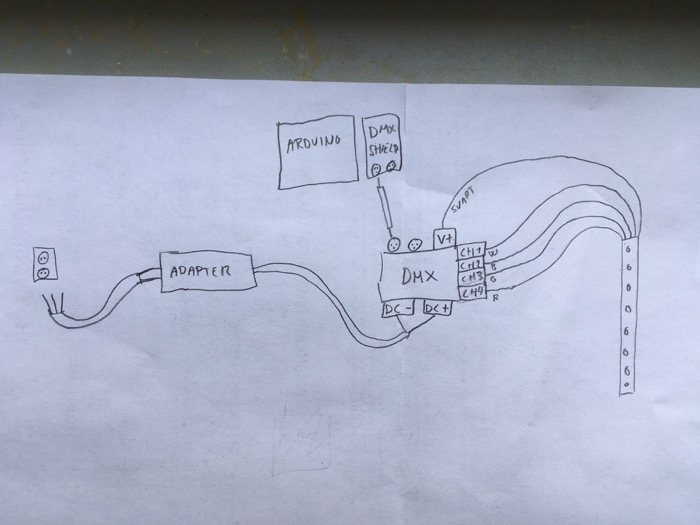 ARDUINO
DMX
SHIELD
SVART
V+
CH1
W
CH2
B
CH3
G
CH4
R
ADAPTER
DMX
DC-
DC+